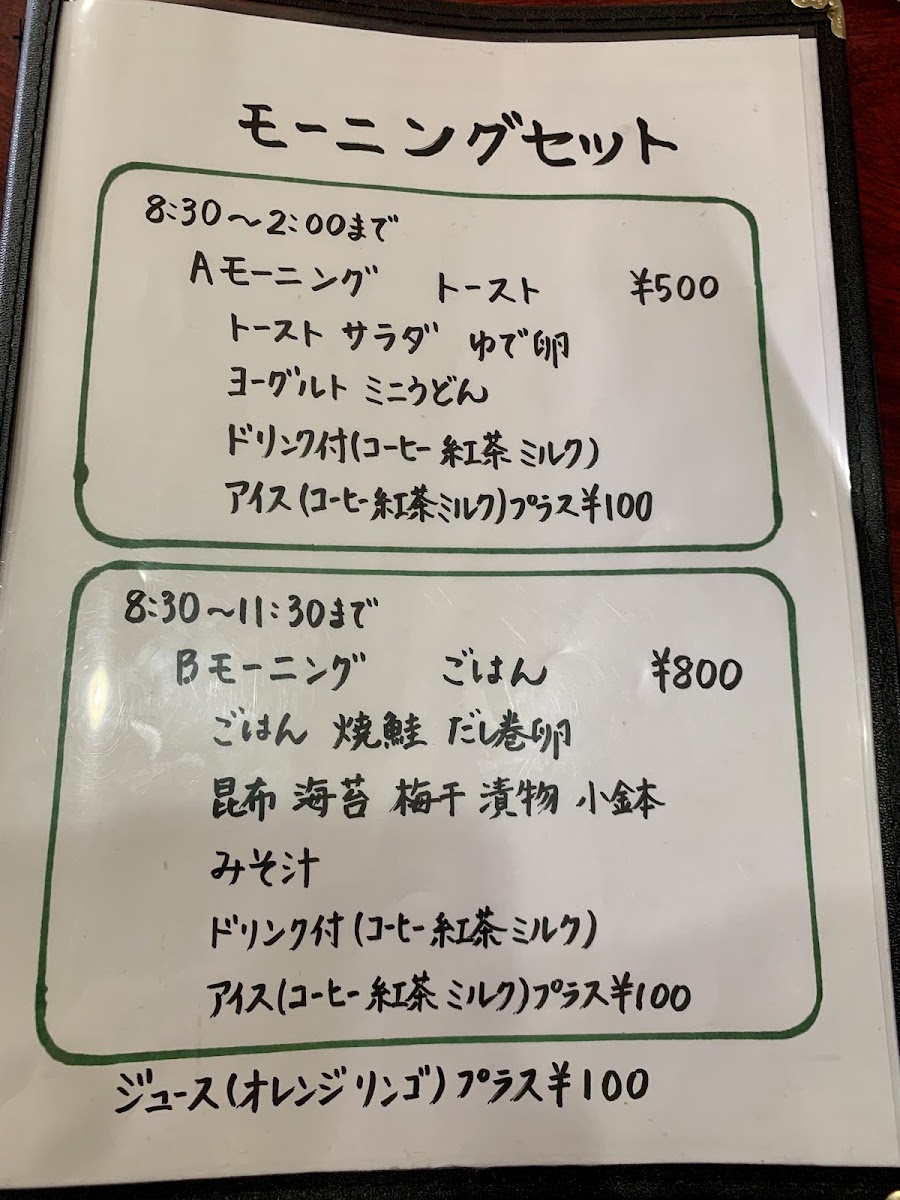 モーニングセット
8:30〜2:00まで
Aモーニング トースト ¥500
トースト サラダ ゆで卵
ヨーグルト ミニうどん
ドリンク付(コーヒー 紅茶 ミルク)
アイス(コーヒー紅茶ミルク)プラス¥100
8:30〜11:30まで
Bモーニング ごはん ¥800
ごはん 焼鮭 だし巻卵
昆布 海苔 梅干 漬物 小鉢
みそ汁
ドリンク付(コーヒー 紅茶 ミルク)
アイス(コーヒー 紅茶 ミルク)プラス¥100
ジュース(オレンジ リンゴ)プラス¥100